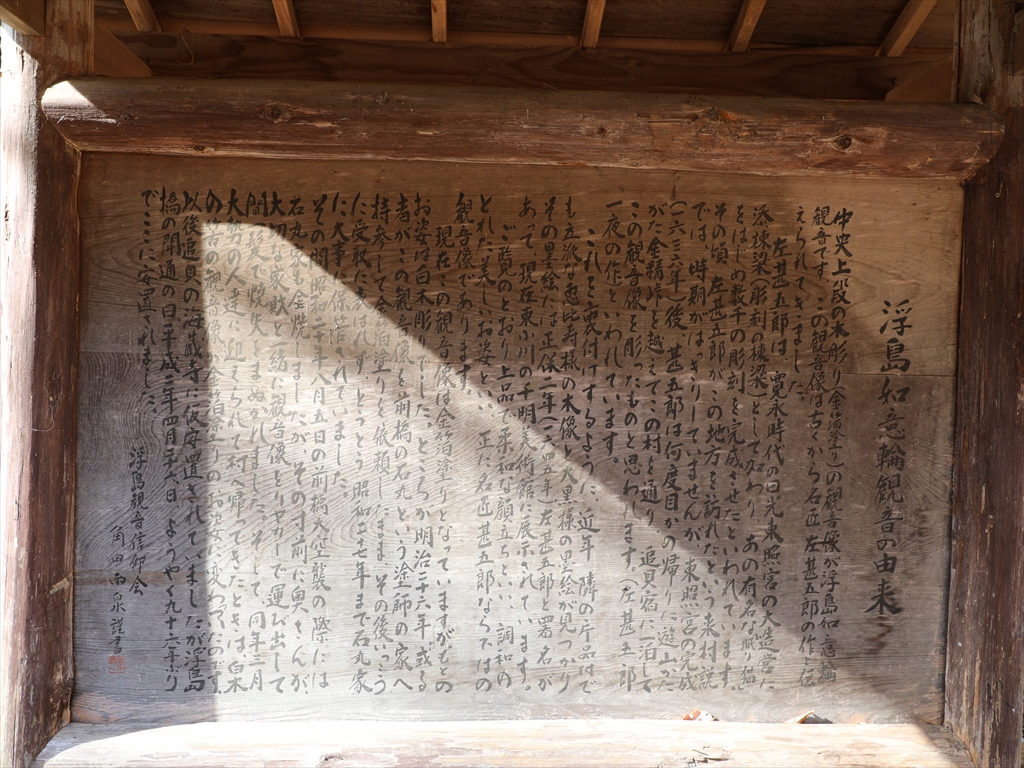 浮島如意輪観音の由来
中央上段の木彫り(金箔塗り)の観音像が浮島如意輪
観音です。この観音像は古くから名匠左甚五郎の作と伝
えられてきました。
左甚五郎は、寛永時代の日光東照宮の大造営に
添棟梁(彫刻の棟梁)として加わり、あの有名な眠り猫
をはじめ数千の彫刻を完成させたといわれています。
その頃、左甚五郎がこの地方を訪れたという来村説
では、時期がはっきりしていませんが、東照宮の完成
(一六三六年)後、甚五郎は何度目かの帰りに遊山った
がた金精峠を越えてこの村を通り、追貝宿に一泊して
この観音像を彫ったものと思われます。(左甚五郎
一夜の作)といわれています
これを裏付けするように、近年、隣の片品はで
も立派な恵比寿様の木像と大黒様の墨絵が見つかり
その墨絵には正保二年(一六四五年)左甚五郎と署名が
あって、現在東小川の千明美術館に展示されています。
ご覧のとおり上品で柔和な顔立ちといい、調和の
とれた美しいお姿といい、正に名匠甚五郎ならではの
観音像であります。
現在この観音像は金箔塗りとなっていますがもとの
お姿は白木彫でした。ところが明治二十六年、或る
者がこの観音像を前橋の石丸という塗師の家へ
持参して金箔塗りを依頼したまま、その後いっこう
に受取りに来られず、とうとう昭和二十年まで石丸家
に大事に保存されていました。
その間、昭和二十年八月五日の前橋大空襲の際には
石丸家も全焼しましたが、その寸前に奥さんが
大切な家財と一緒に観音像をリヤカーで運び出して
間一髪で焼失をまぬがれました。そして、同年三月
大勢の人達に迎えられて村へ帰ってきたときは白木
の観音像が金箔塗りのお姿に変わってたのです。
以後追貝の海蔵寺に仮安置されていましたが浮島
橋の開通の日、平成二年四月二十六日、ようやく九十六年ぶり
でここに安置されました。
浮島観音信仰会
角田南泉 謹書